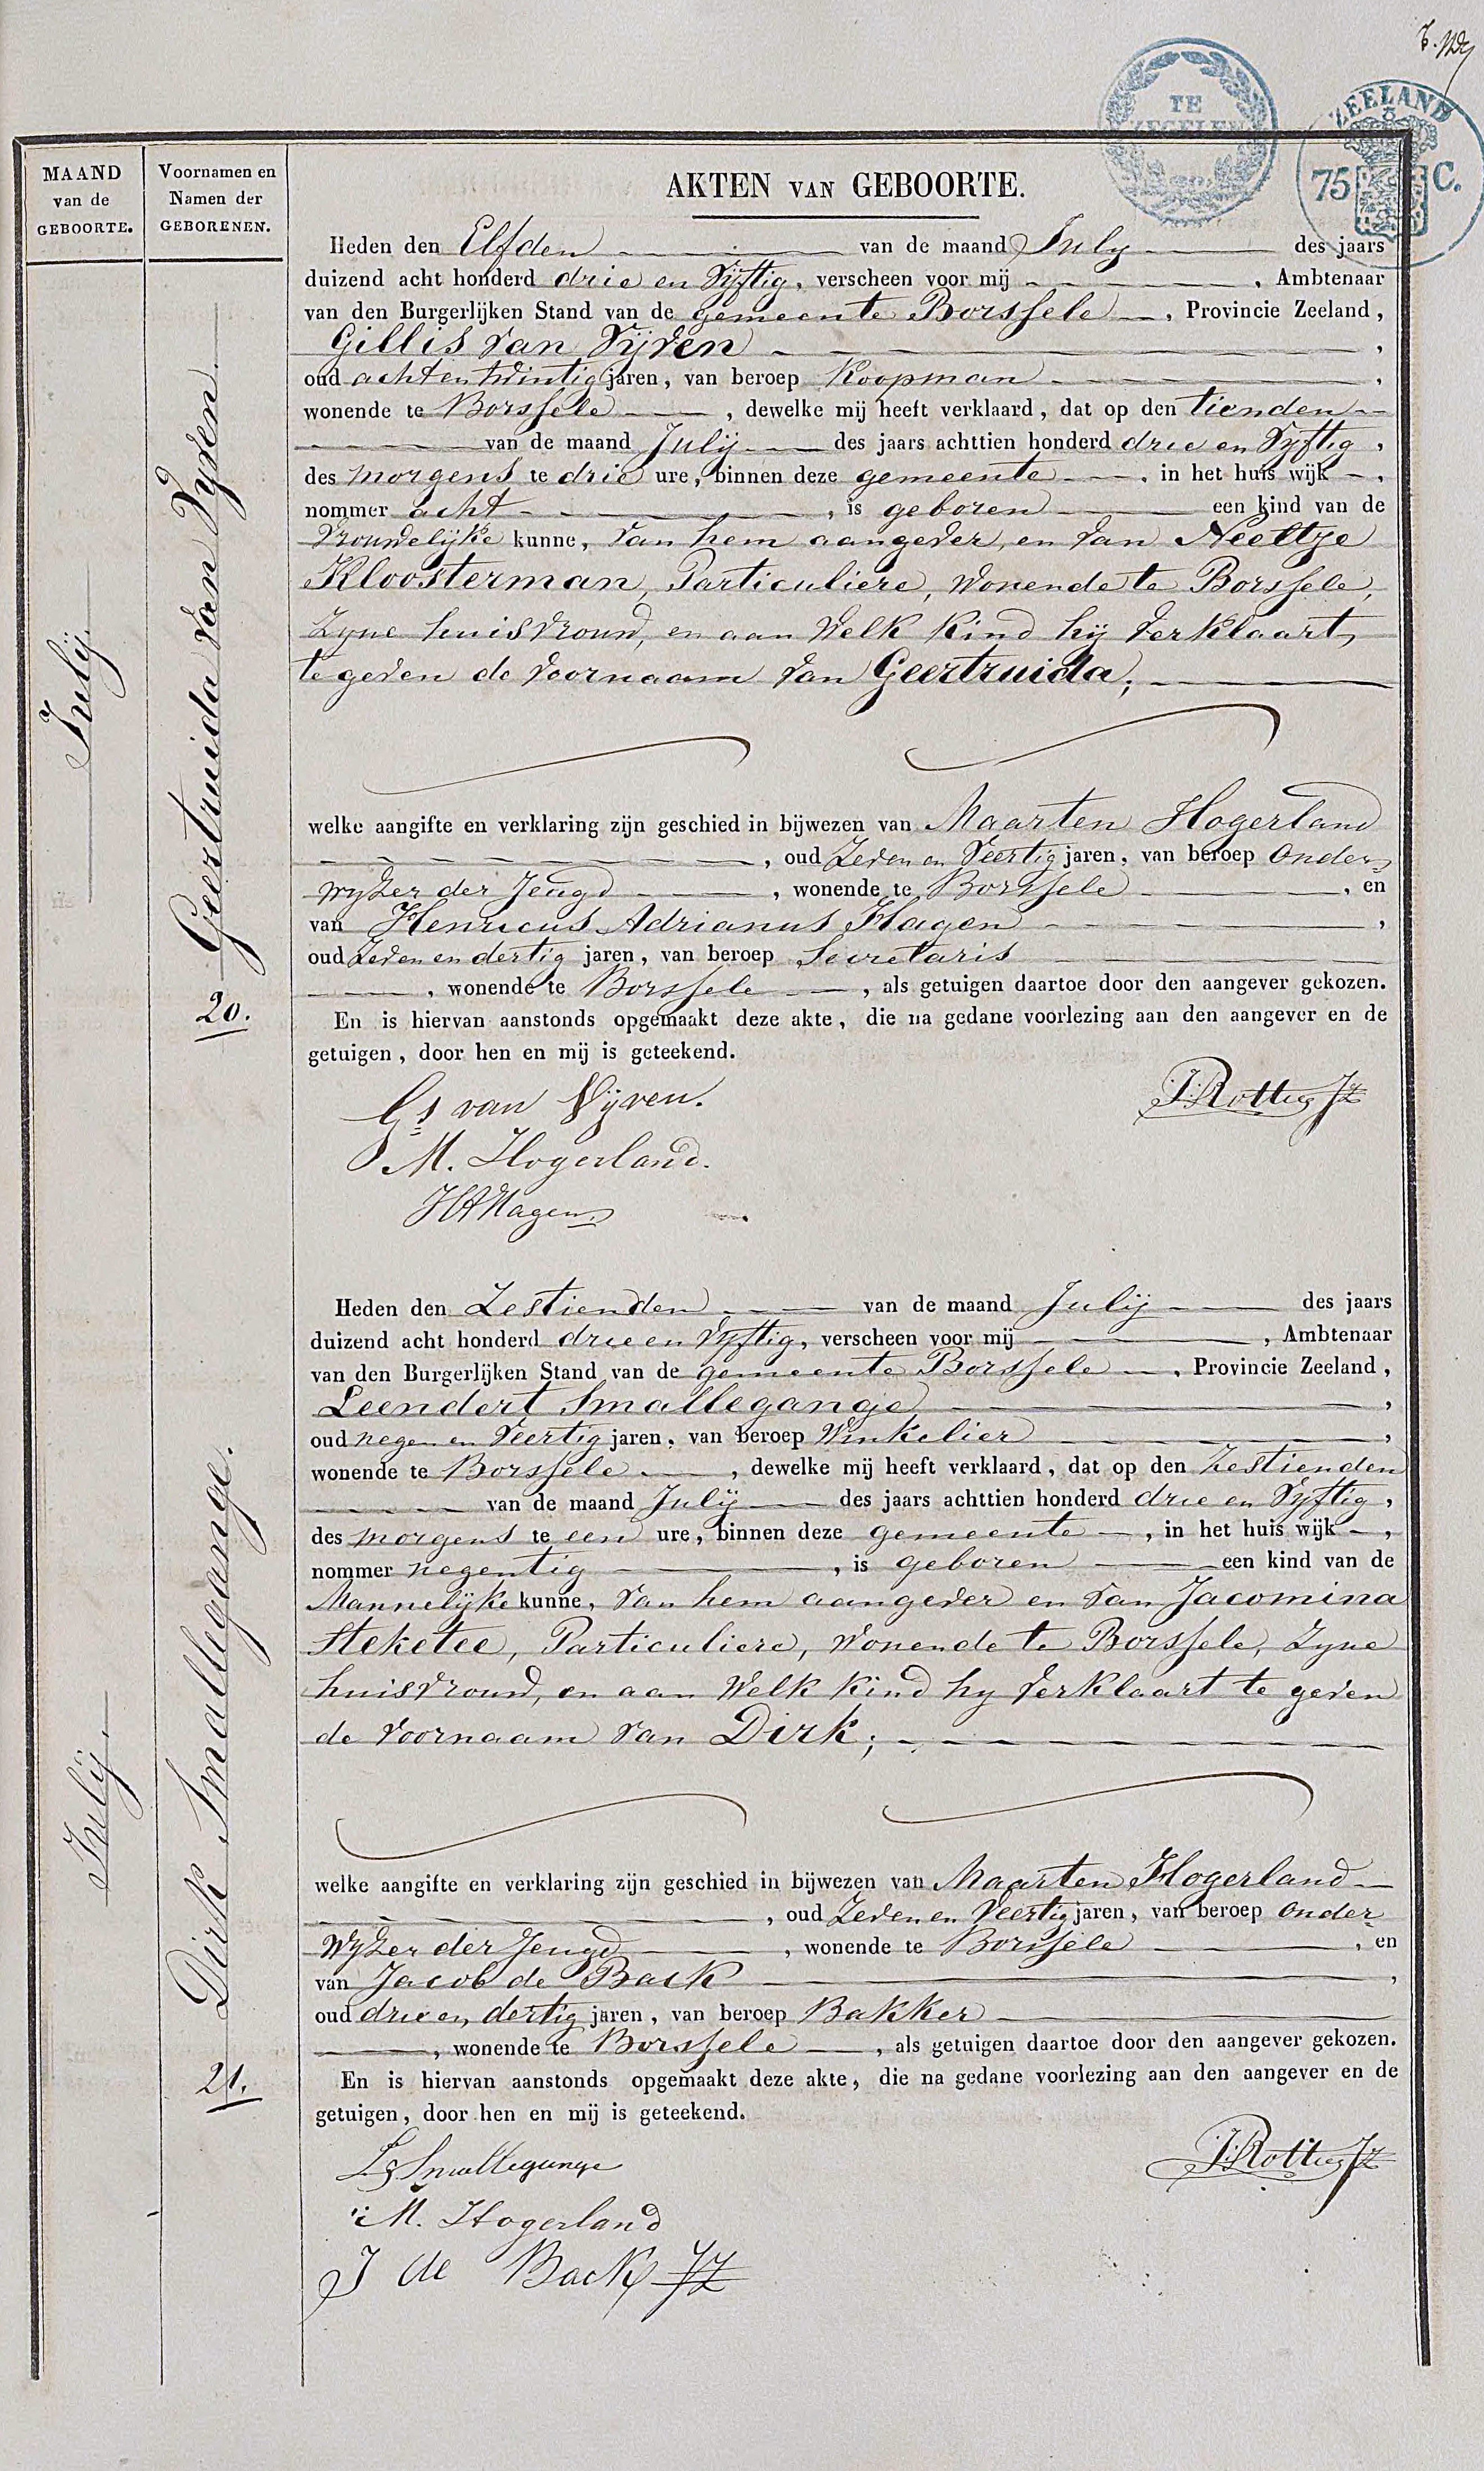 TE
ZEGELEN
ZEELAND
75 C.
MAAND
van de
GEBOORTE.
Voornamen en
Namen der
GEBORENEN.
AKTEN VAN GEBOORTE.
July.
Geertruida van Vyven.
20.
Heden den Elfden van de maand July des jaars
duizend acht honderd drie en Vijftig, verscheen voor mij , Ambtenaar
van den Burgerlijken Stand van de gemeente Borssele , Provincie Zeeland,
Gillis van Vijven ,
oud acht en twintig jaren, van beroep Koopman ,
wonende te Borssele , dewelke mij heeft verklaard, dat op den tienden
van de maand Julij des jaars achttien honderd drie en Vyftig,
des morgens te drie ure, binnen deze gemeente , in het huis wijk ,
nommer acht , is geboren een kind van de
Vrouwelijke kunne, van hem aangever, en van Neeltje
Kloosterman, Particuliere, wonende te Borssele,
zyne huisvrouw, en aan welk kind hij verklaart
te geven de voornaam van Geertruida;
welke aangifte en verklaring zijn geschied in bijwezen van Maarten Hogerland
, oud Zeven en Veertig jaren, van beroep Onder
wyzer der Jeugd , wonende te Borssele , en
van Henricus Adrianus Hagen ,
oud Zeven en dertig jaren, van beroep Secretaris
, wonende te Borssele , als getuigen daartoe door den aangever gekozen.
En is hiervan aanstonds opgemaakt deze akte, die na gedane voorlezing aan den aangever en de
getuigen, door hen en mij is geteekend.
Gs van Vijven.
J. Rottier Jz
M. Hogerland.
HA Hagen
Julij.
Dirk Smallegange.
21.
Heden den Zestienden van de maand Julij des jaars
duizend acht honderd drie en Vyftig, verscheen voor mij , Ambtenaar
van den Burgerlijken Stand van de gemeente Borssele , Provincie Zeeland,
Leendert Smallegange ,
oud negen en Veertig jaren, van beroep Winkelier ,
wonende te Borssele , dewelke mij heeft verklaard, dat op den Zestienden
van de maand Julij des jaars achttien honderd drie en Vyftig,
des morgens te een ure, binnen deze gemeente , in het huis wijk ,
nommer negentig , is geboren een kind van de
Mannelijke kunne, van hem aangever en van Jacomina
Steketee, Particuliere, wonende te Borssele, zyne
huisvrouw, en aan welk kind hy verklaart te geven
de voornaam van Dirk;
welke aangifte en verklaring zijn geschied in bijwezen van Maarten Hogerland
, oud Zeven en Veertig jaren, van beroep Onder
wyzer der Jeugd , wonende te Borssele , en
van Jacob de Back ,
oud drie en dertig jaren, van beroep Bakker
, wonende te Borssele , als getuigen daartoe door den aangever gekozen.
En is hiervan aanstonds opgemaakt deze akte, die na gedane voorlezing aan den aangever en de
getuigen, door hen en mij is geteekend.
Ls Smallegange
J. Rottier Jz
M. Hogerland
J de Back Jz